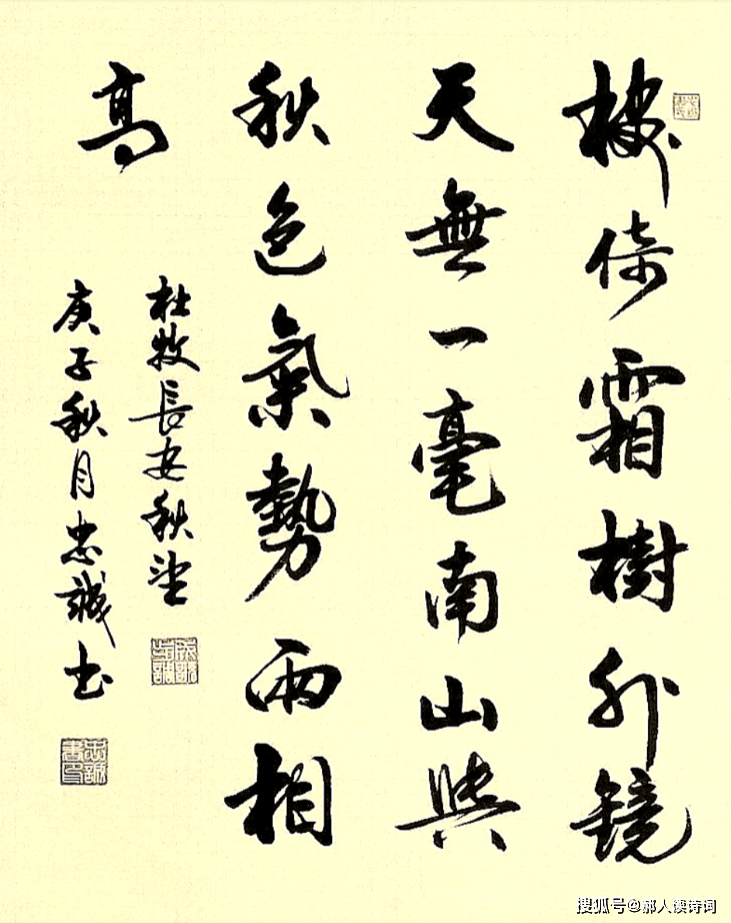 楼倚霜樹外鏡
天無一毫南山與
秋色氣勢兩相
高
杜牧長安秋望
庚子秋月忠誠书
搜狐号@郝人读诗词